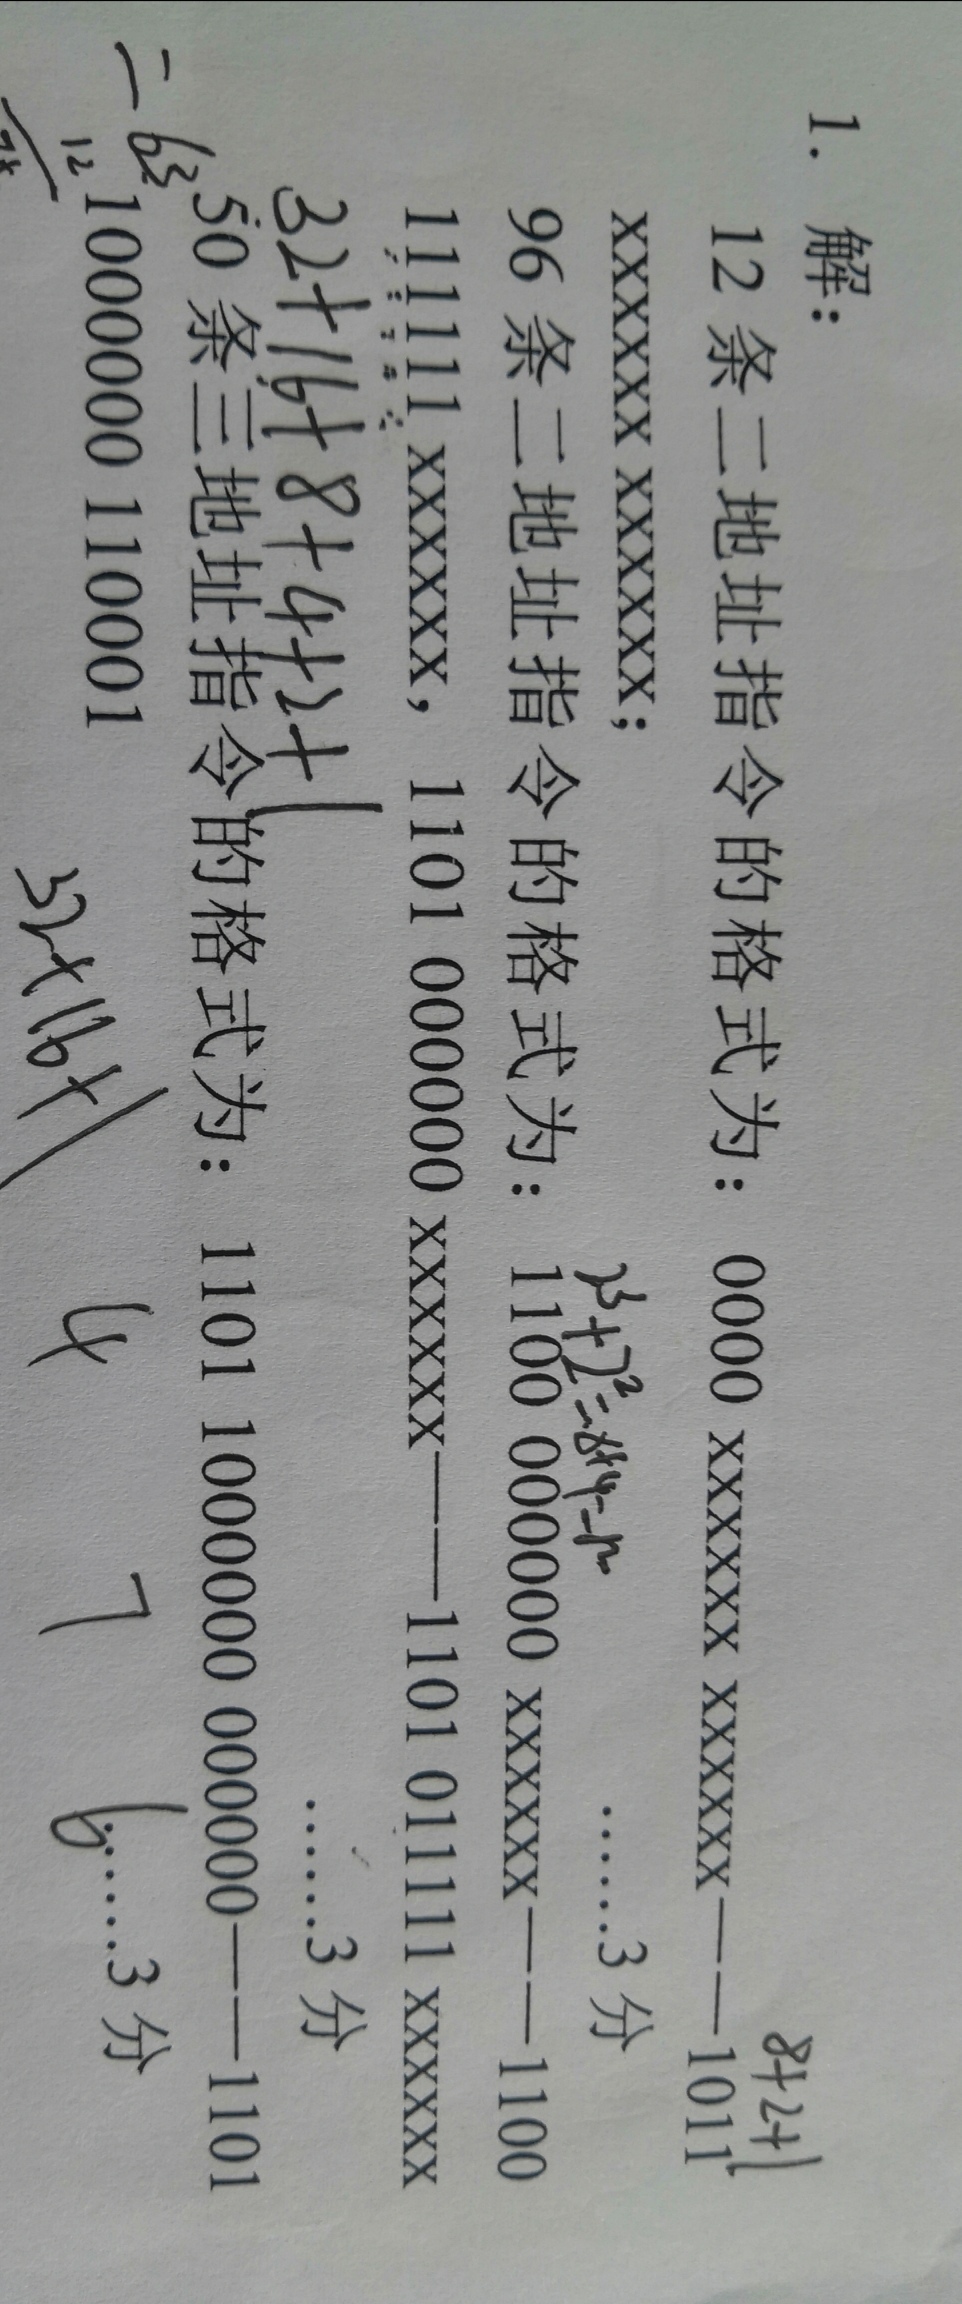 1. 解:
8+2+1
12 条二地址指令的格式为: 0000 xxxxxx xxxxxx——1011
xxxxxx xxxxxx;
……3 分
2³+2²=8+4=12
96 条二地址指令的格式为: 1100 000000 xxxxxx——1100
111111 xxxxxx, 1101 000000 xxxxxx——1101 011111 xxxxxx
……3 分
32+16+8+4+2+1
50 条三地址指令的格式为: 1101 100000 000000——1101
100000 110001
……3 分
63
12
32+16+1
4
7
6